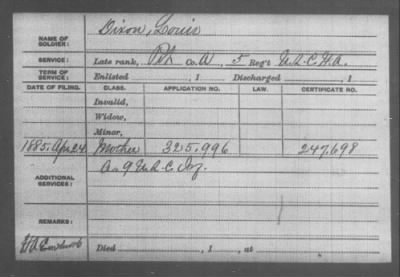 NAME OF SOLDIER: Dixon, Louis
SERVICE: Late rank, Pvt Co. A, 5 Reg't U.S.C.H.A.
TERM OF SERVICE: Enlisted , 1 Discharged , 1
DATE OF FILING. CLASS. APPLICATION NO. LAW. CERTIFICATE NO.
Invalid,
Widow,
Minor,
1885, Apr 24 Mother 325,996 247,698
ADDITIONAL SERVICES: Co 9 U.S.C. Inf.
REMARKS:
Died , 1 , at